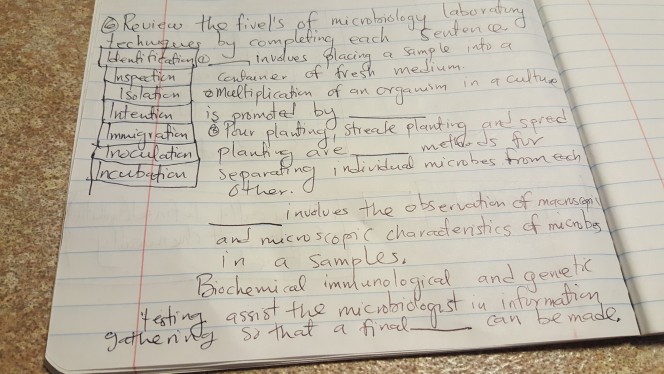 ⑥ Review the five I's of microbiology laboratory
techniques by completing each sentence
Identification ① ____ involves placing a sample into a
Inspection container of fresh medium.
Isolation ② multiplication of an organism in a culture
Intention is promoted by ____
Immigration ③ Pour planting, streake planting and spred
Inoculation planting are ____ methods for
Incubation separating individual microbes from each
other.
____ involves the observation of macroscopic
and microscopic characteristics of microbes
in a samples.
Biochemical immunological and genetic
testing assist the microbiologist in information
gathering so that a final ____ can be made.